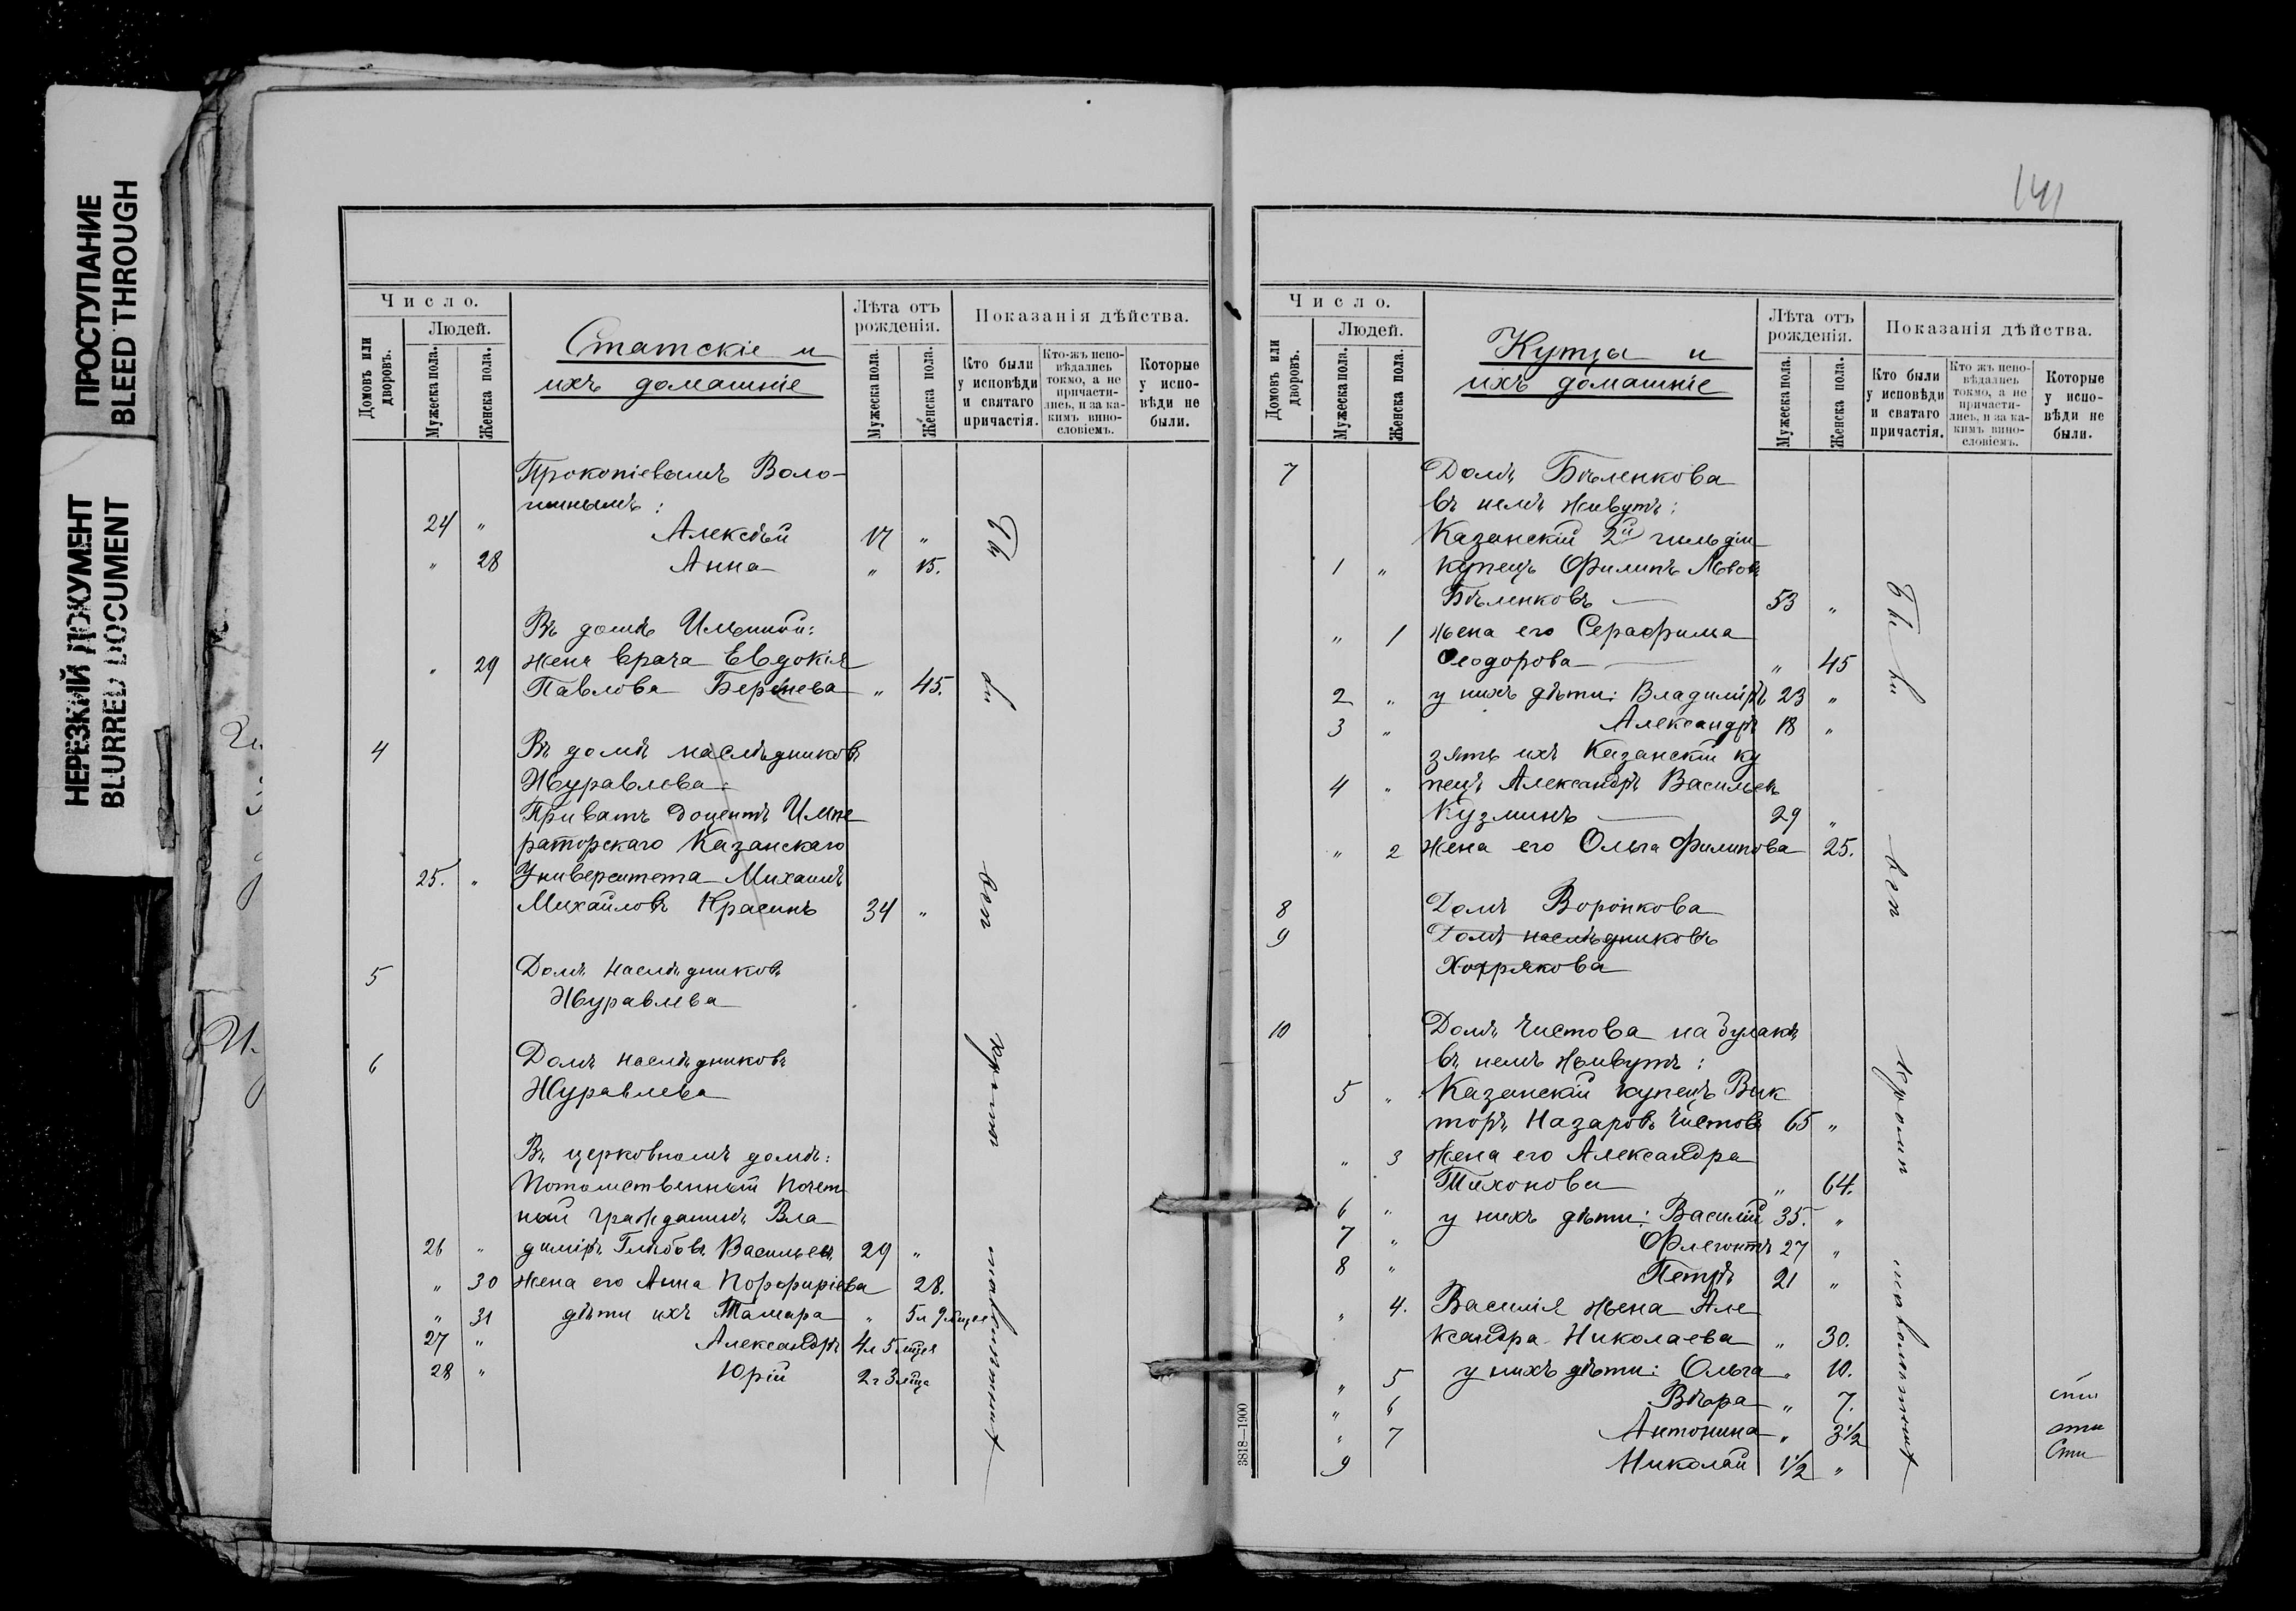 ПРОСТУПАНИЕ
BLEED THROUGH
НЕРЕЗКИЙ ДОКУМЕНТ
BLURRED DOCUMENT
Число.
Домовъ или дворовъ.
Людей.
Мужеска пола.
Женска пола.
Статскіе и
ихъ домашніе
Лѣта отъ
рожденія.
Мужеска пола.
Женска пола.
Показанія дѣйства.
Кто были
у исповѣди
и святаго
причастія.
Кто-жъ испо-
вѣдались
токмо, а не
причасти-
лись, и за ка-
кимъ вино-
словіемъ.
Которые
у испо-
вѣди не
были.
Прокопіевымъ Воло-
шинымъ:
24 " Алексѣй 17 "
" 28 Анна " 15.
Въ домѣ Ильиной:
" 29 жена врача Евдокія
Павлова " 45.
4 Въ домѣ наслѣдниковъ
Журавлева:
Приватъ доцентъ Импе
раторскаго Казанскаго
25. " Университета Михаилъ
Михайловъ Красинъ 34 "
5 Домъ наслѣдниковъ
Журавлева
6 Домъ наслѣдниковъ
Журавлева
Въ церковномъ домѣ:
Потомственный почет
ный гражданинъ Вла
26 " диміръ Глѣбовъ Васильевъ 29 "
" 30 жена его Анна Порфиріева 28.
" 31 дѣти ихъ Тамара " 5 л 9 мцев
27 " Александръ 4 л 5 мцев
28 " Юрій 2 г 3 мца
Бы
ли
вси
кромѣ
малолѣтнихъ
141
Число.
Домовъ или дворовъ.
Людей.
Мужеска пола.
Женска пола.
Купцы и
ихъ домашніе
Лѣта отъ
рожденія.
Мужеска пола.
Женска пола.
Показанія дѣйства.
Кто были
у исповѣди
и святаго
причастія.
Кто жъ испо-
вѣдались
токмо, а не
причасти-
лись, и за ка-
кимъ вино-
словіемъ.
Которые
у испо-
вѣди не
были.
7 Домъ Бѣленкова
въ немъ живутъ:
Казанскій 2й гильдіи
1 " купецъ Филипъ Львовъ
Бѣленковъ 53 "
" 1 жена его Серафима
Ѳеодорова " 45
2 " у нихъ дѣти: Владиміръ 23 "
3 " Александръ 18 "
зять ихъ Казанскій ку
4 " пецъ Александръ Васильевъ
Кузминъ 29 "
" 2 жена его Ольга Филипова 25.
8 Домъ Воронкова
9 Домъ наслѣдниковъ
Хохрякова
10 Домъ Чистова на булакѣ
въ немъ живутъ:
5 " Казанскій купецъ Вик
торъ Назаровъ Чистовъ 65 "
" 3 жена его Александра
Тихонова " 64.
6 " у нихъ дѣти: Василій 35. "
7 " Флегонтъ 27 "
8 " Петръ 21 "
" 4. Василія жена Але
ксандра Николаева " 30.
" 5 у нихъ дѣти: Ольга " 10.
" 6 Вѣра " 7.
" 7 Антонина " 3½
9 Николай 1½ "
Бы
ли
вси
кромѣ
малолѣтнихъ
3818—1900